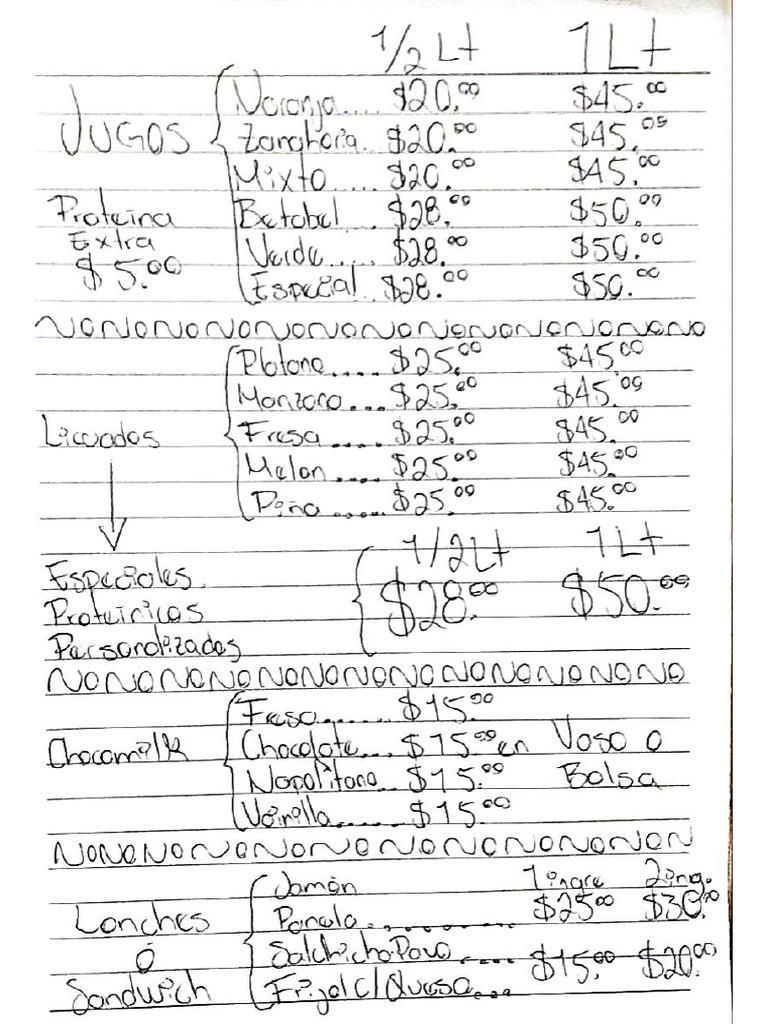 1/2 Lt 1 Lt
Naranja..... $20.00 $45.00
JUGOS Zanahoria. $20.00 $45.00
Mixto..... $20.00 $45.00
Proteina Betabel... $28.00 $50.00
Extra Verde..... $28.00 $50.00
$5.00 Especial. $28.00 $50.00
Platano..... $25.00 $45.00
Manzana... $25.00 $45.00
Licuados Fresa..... $25.00 $45.00
Melon..... $25.00 $45.00
Piña...... $25.00 $45.00
1/2 Lt 1 Lt
Especiales $28.00 $50.00
Proteinicos
Personalizados
Fresa....... $15.00
Chocomilk Chocolate... $15.00 en Vaso o
Napolitano.. $15.00 Bolsa
Vainilla....... $15.00
Jamón 1 ingre 2 ing.
Lonches Panela........... $25.00 $30.00
ó Salchicha Pavo.....
Sandwich Frijol c/Queso.... $15.00 $20.00